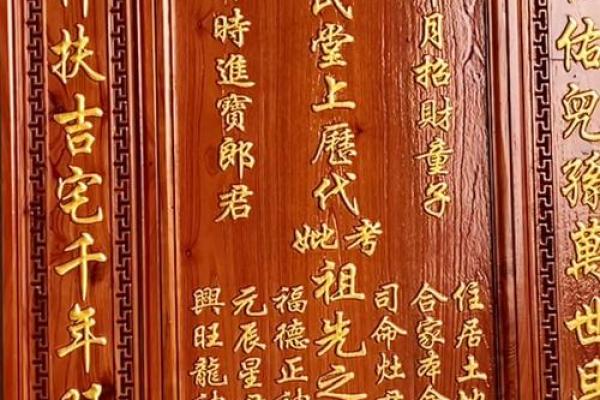 佑兒孫萬世
月招財童子
住居土地
合家本命
司命灶君
氏堂上歷代考妣祖先之
時進寶郎君
福德正神
元辰星君
興旺龍神
扶吉宅千年